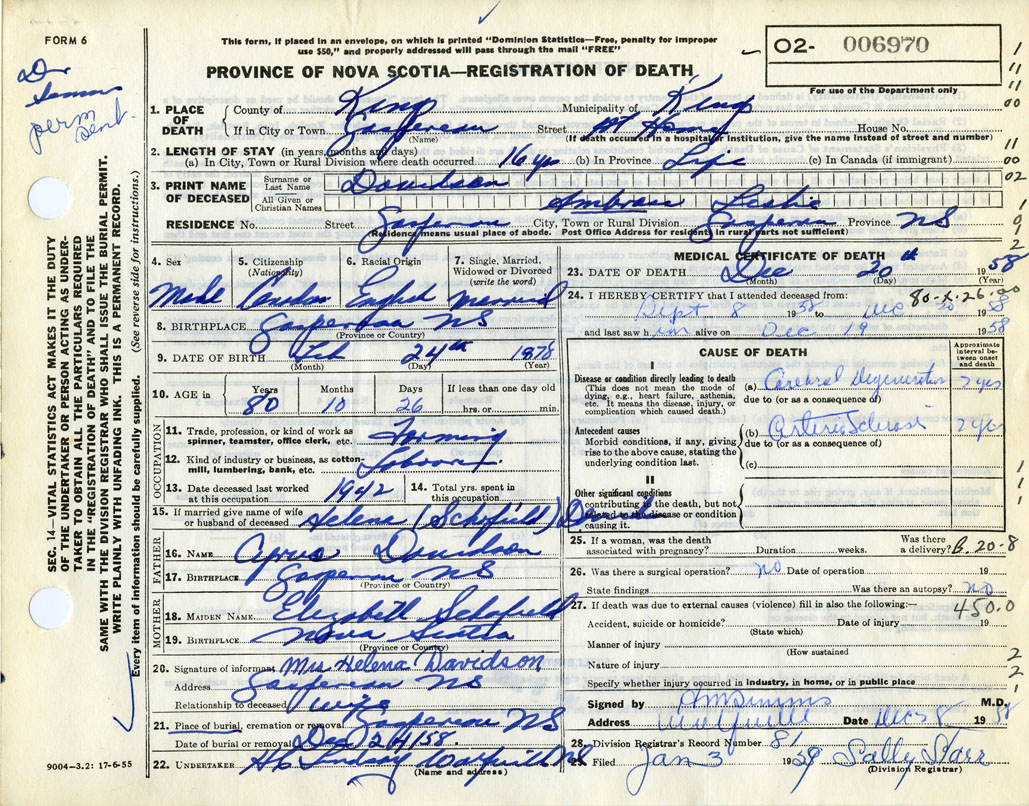 FORM 6
This form, if placed in an envelope, on which is printed "Dominion Statistics—Free, penalty for improper
use $50," and properly addressed will pass through the mail "FREE"
O2- 006970
For use of the Department only
PROVINCE OF NOVA SCOTIA—REGISTRATION OF DEATH
Dr
perm
sent.
1. PLACE OF DEATH County of Kings Municipality of Kings
If in City or Town Gaspereau Street At Home House No.
(Name) (If death occurred in a hospital or institution, give the name instead of street and number)
2. LENGTH OF STAY (in years, months and days)
(a) In City, Town or Rural Division where death occurred 16 yrs (b) In Province Life (c) In Canada (if immigrant)
3. PRINT NAME OF DECEASED Surname or Last Name Davidson
All Given or Christian Names Ambrose Leslie
RESIDENCE No. Street Gaspereau City, Town or Rural Division Gaspereau Province NS
(Residence means usual place of abode. Post Office Address for residents in rural parts not sufficient)
4. Sex 5. Citizenship (Nationality) 6. Racial Origin 7. Single, Married, Widowed or Divorced (write the word)
Male English Married
8. BIRTHPLACE Gaspereau NS
(Province or Country)
9. DATE OF BIRTH Feb 24th 1878
(Month) (Day) (Year)
10. AGE in Years Months Days If less than one day old
80 10 26 hrs. or min.
OCCUPATION
11. Trade, profession, or kind of work as spinner, teamster, office clerk, etc. Farming
12. Kind of industry or business, as cotton-mill, lumbering, bank, etc.
13. Date deceased last worked at this occupation 1942 14. Total yrs. spent in this occupation
15. If married give name of wife or husband of deceased Helena (Schofield)
FATHER
16. NAME Cyrus Davidson
17. BIRTHPLACE Gaspereau NS
(Province or Country)
MOTHER
18. MAIDEN NAME Elizabeth Schofield
19. BIRTHPLACE Nova Scotia
(Province or Country)
20. Signature of informant Mrs Helena Davidson
Address Gaspereau NS
Relationship to deceased wife
21. Place of burial, cremation or removal Gaspereau NS
Date of burial or removal Dec 24/58.
22. UNDERTAKER Lindsay NS
(Name and address)
MEDICAL CERTIFICATE OF DEATH
23. DATE OF DEATH Dec 20th 1958
(Month) (Day) (Year)
80-X-26.00
24. I HEREBY CERTIFY that I attended deceased from:
Sept 8 1958 to Dec 20 1958
and last saw him alive on Dec 19 1958
CAUSE OF DEATH
Approximate interval between onset and death
I
Disease or condition directly leading to death
(This does not mean the mode of dying, e.g., heart failure, asthenia, etc. It means the disease, injury, or complication which caused death.)
(a) Cerebral Degeneration 2 yrs
due to (or as a consequence of)
Antecedent causes
Morbid conditions, if any, giving rise to the above cause, stating the underlying condition last.
(b) Arteriosclerosis
due to (or as a consequence of)
(c)
II
Other significant conditions
contributing to the death, but not related to the disease or condition causing it.
25. If a woman, was the death associated with pregnancy? Duration weeks. Was there a delivery? B.20-8
26. Was there a surgical operation? no Date of operation 19
State findings Was there an autopsy? no
27. If death was due to external causes (violence) fill in also the following:—
450.0
Accident, suicide or homicide? Date of injury 19
(State which)
Manner of injury
(How sustained)
Nature of injury
Specify whether injury occurred in industry, in home, or in public place
Signed by M.D.
Address Wolfville Date 1958
28. Division Registrar's Record Number 81
29. Filed Jan 3 1959 Sally Starr
(Division Registrar)
SEC. 14—VITAL STATISTICS ACT MAKES IT THE DUTY
OF THE UNDERTAKER OR PERSON ACTING AS UNDER-
TAKER TO OBTAIN ALL THE PARTICULARS REQUIRED
IN THE "REGISTRATION OF DEATH" AND TO FILE THE
SAME WITH THE DIVISION REGISTRAR WHO SHALL ISSUE THE BURIAL PERMIT.
WRITE PLAINLY WITH UNFADING INK. THIS IS A PERMANENT RECORD.
Every item of information should be carefully supplied. (See reverse side for instructions.)
9004—3.2: 17-6-55